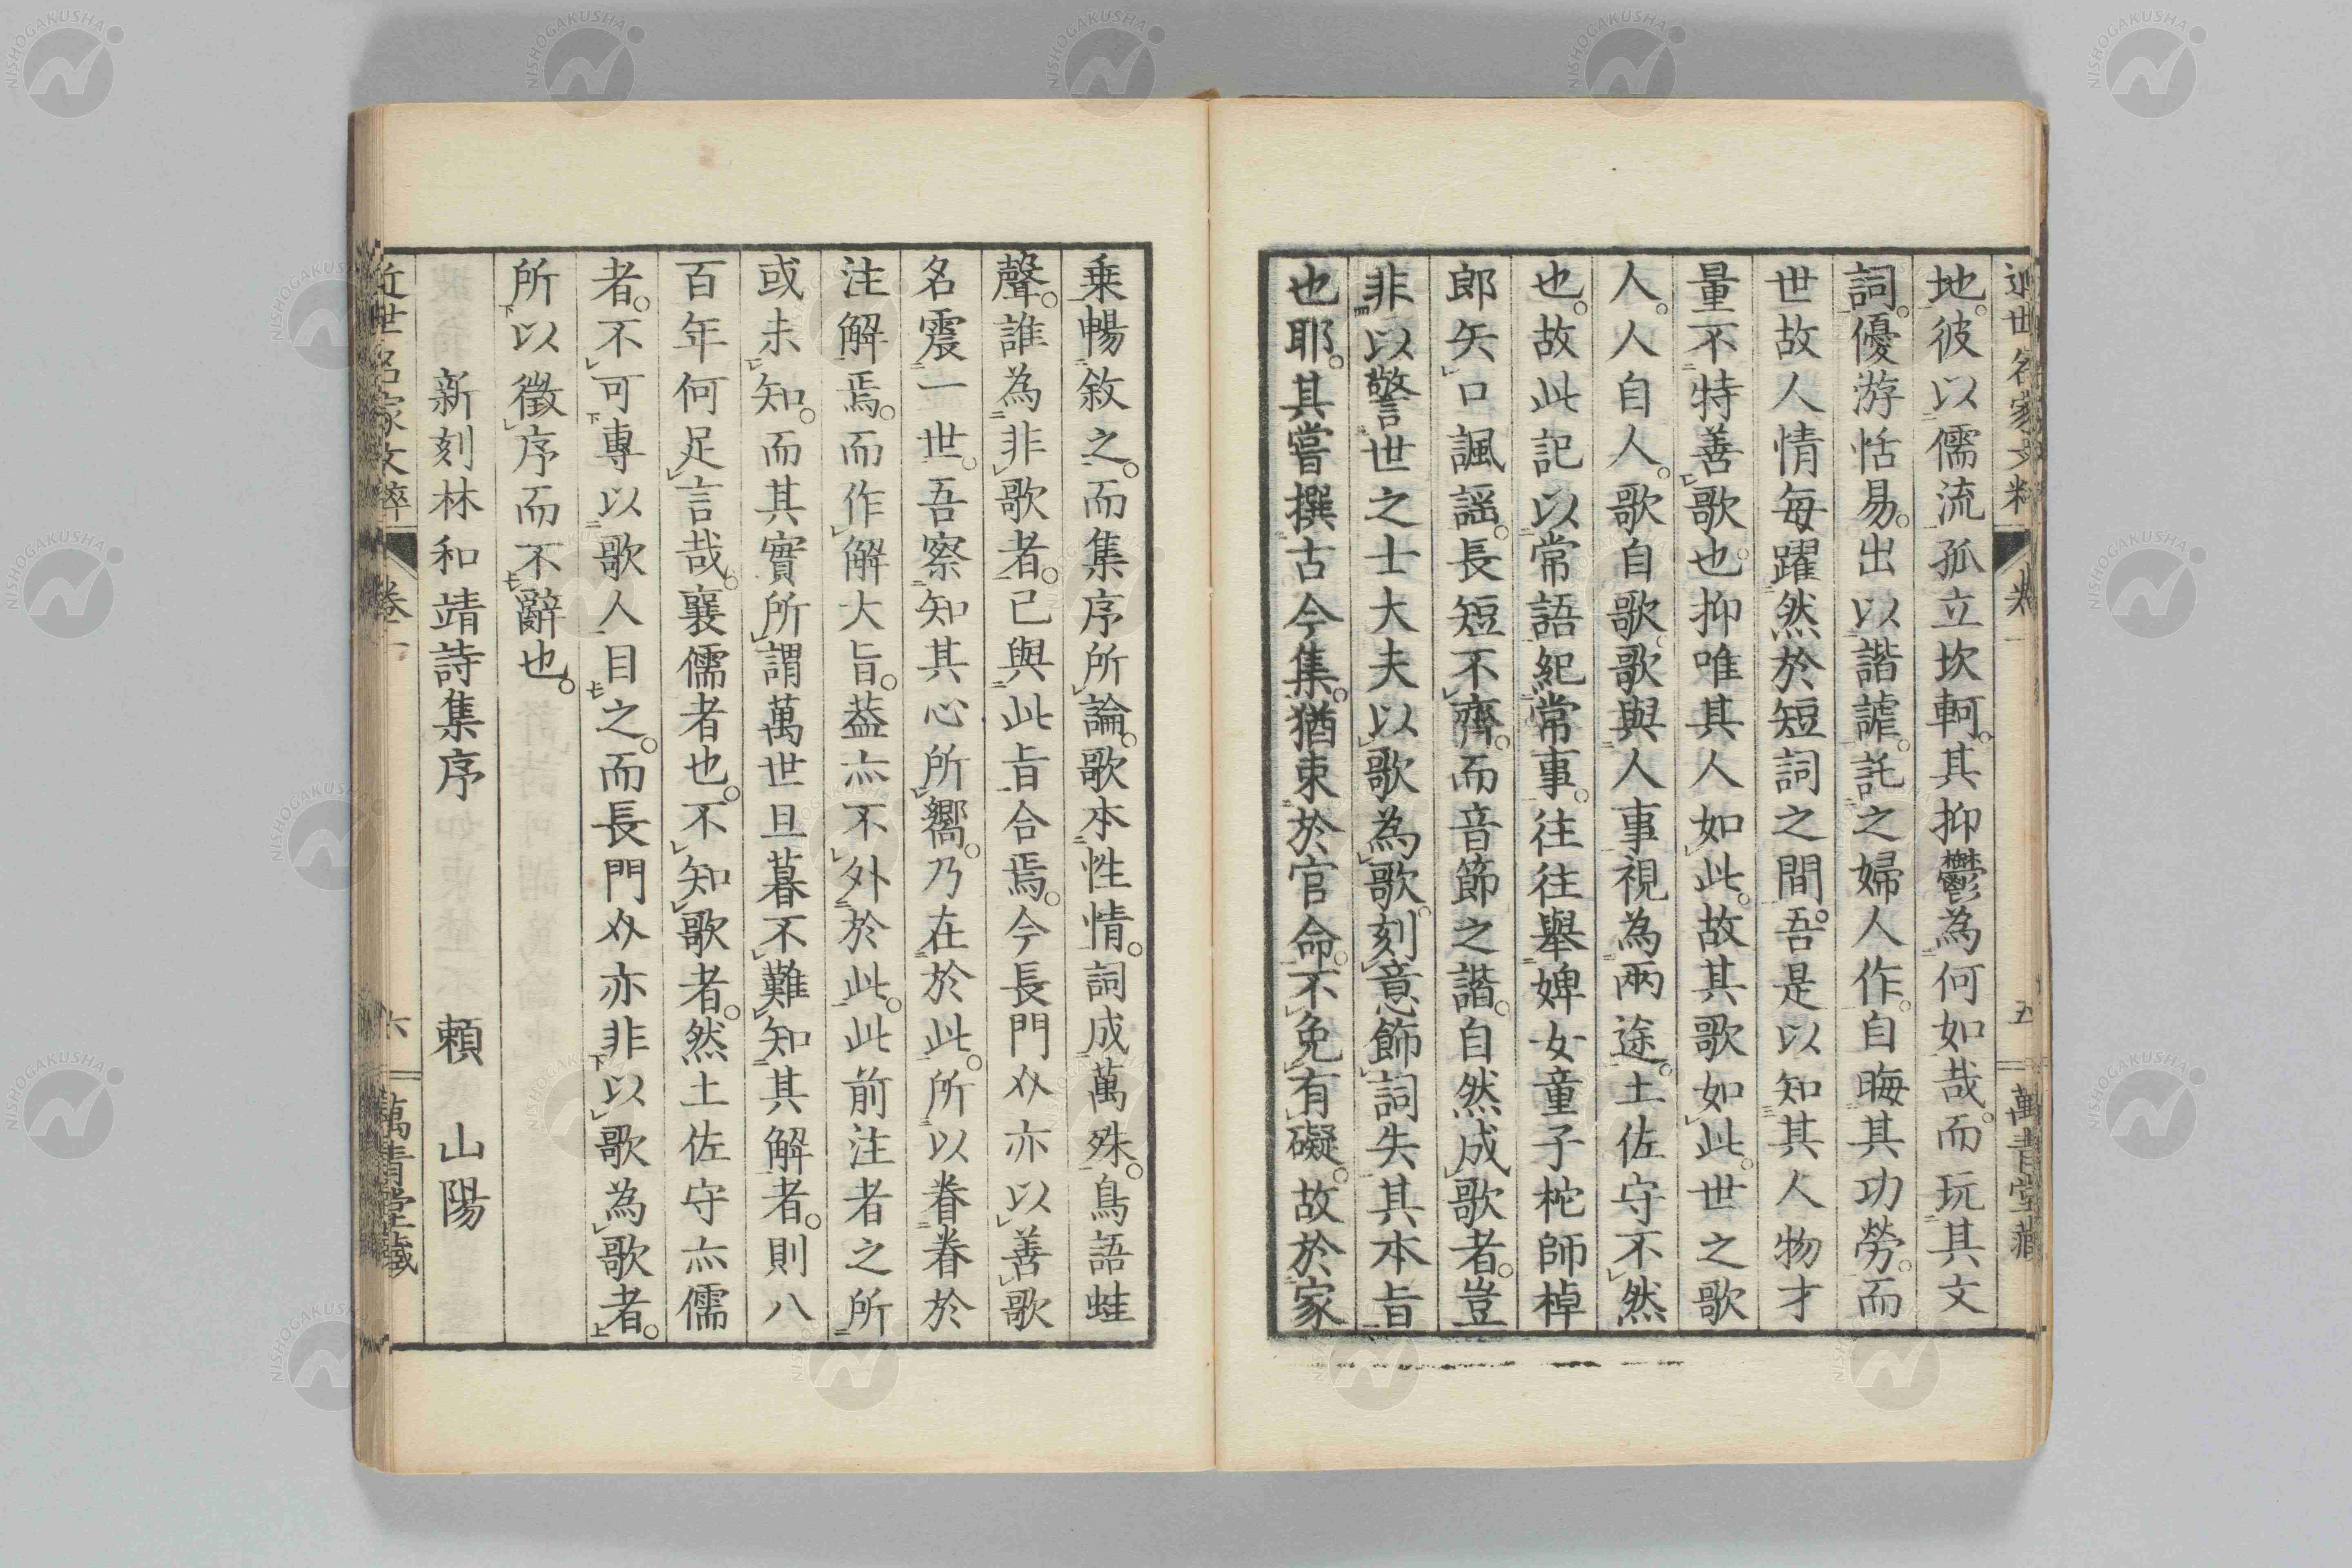 地。彼以儒流孤立坎軻。其抑鬱為何如哉。而玩其文
詞。優游恬易。出以諧謔。託之婦人作。自晦其功勞。而
世故人情每躍然於短詞之間。吾是以知其人物才
量不特善歌也。抑唯其人如此。故其歌如此。世之歌
人。人自人。歌自歌。歌與人事視為兩途。土佐守不然
也。故此記以常語紀常事。往往舉婢女童子柁師棹
郎矢口諷謡。長短不齊。而音節之諧。自然成歌者。豈
非以警世之士大夫以歌為歌。刻意飾詞失其本旨
也耶。其嘗撰古今集。猶束於官命。不免有礙。故於家
近世名家文粹 卷一 五 萬青堂藏
乗暢敘之。而集序所論。歌本性情。詞成萬殊。鳥語蛙
聲。誰為非歌者。已與此旨合焉。今長門㕛亦以善歌
名震一世。吾察知其心所嚮。乃在於此。所以眷眷於
注解焉。而作解大旨。葢亦不外於此。此前注者之所
或未知。而其實所謂萬世旦暮不難知其解者。則八
百年何足言哉。襄儒者也。不知歌者。然土佐守亦儒
者。不可專以歌人目之。而長門㕛亦非以歌為歌者。
所以徵序而不辭也。
新刻林和靖詩集序 賴山陽
近世名家文粹 卷一 六 萬青堂藏
NISHOGAKUSHA